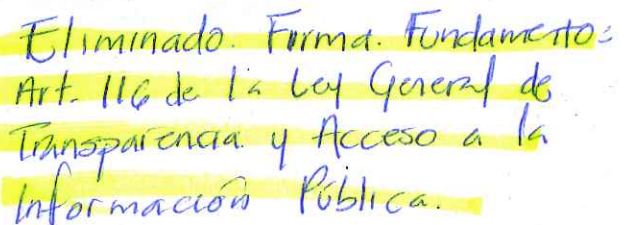 Eliminado. Firma. Fundamento:
Art. 116 de la Ley General de
Transparencia y Acceso a la
Información Pública.